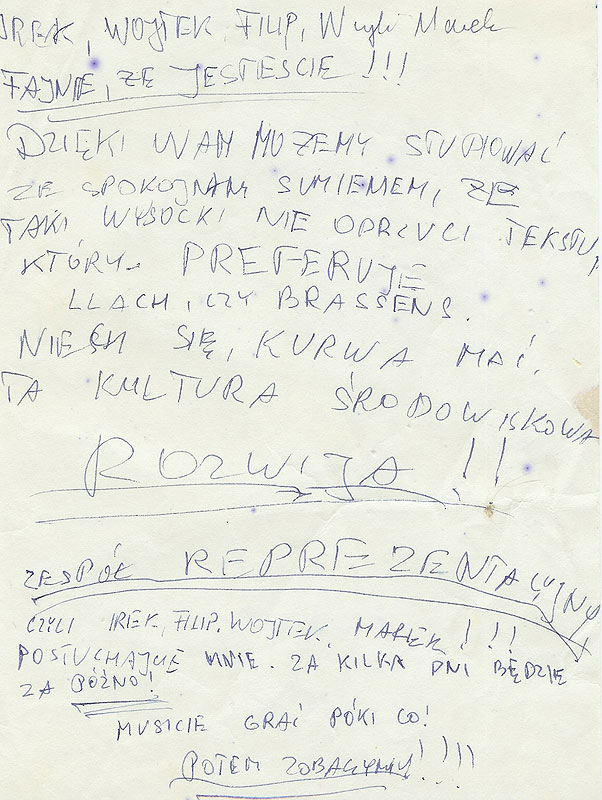 IREK, WOJTEK FILIP, Marek
FAJNIE, ŻE JESTEŚCIE !!!
DZIĘKI WAM MOŻEMY STUDIOWAĆ
ZE SPOKOJNYM SUMIENIEM, ŻE
TAKI WYSOCKI NIE ODRZUCI TEKSTU,
KTÓRY PREFERUJE
LLACH, CZY BRASSENS.
NIECH SIĘ, KURWA MAĆ,
TA KULTURA ŚRODOWISKOWA
ROZWIJA !!
ZESPÓŁ REPREZENTACYJNY
CZYLI IREK, FILIP, WOJTEK, MAREK !!!
POSŁUCHAJCIE MNIE. ZA KILKA DNI BĘDZIE
ZA PÓŹNO!
MUSICIE GRAĆ PÓKI CO!
POTEM ZOBACZYMY!!)))